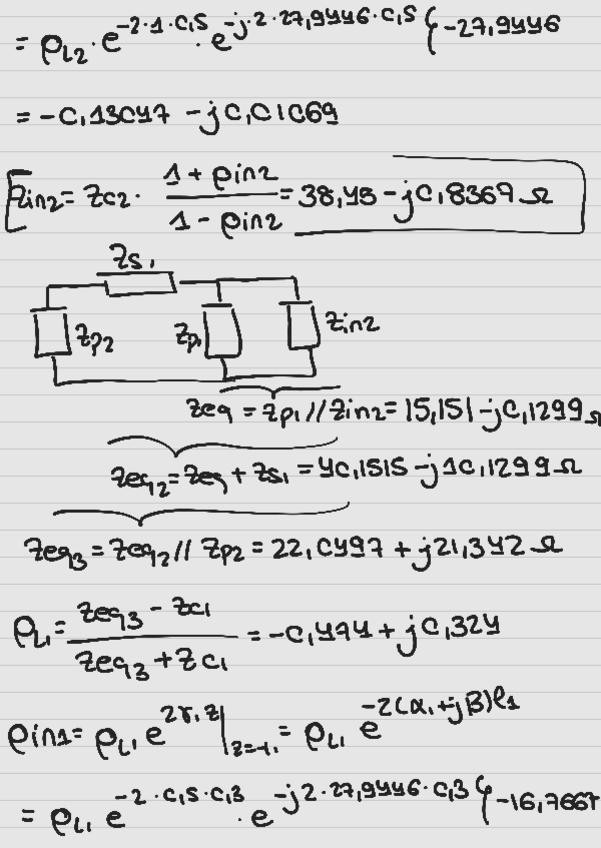 = ρL2 · e^{-2·1·0,5} · e^{-j·2·27,9446·0,5} (-27,9446
= -0,13047 - j0,01069
Zin2 = Zc2 · (1 + ρin2)/(1 - ρin2) = 38,45 - j0,8369 Ω
Zs1
Zp2 Zp1 Zin2
Zeq = Zp1 // Zin2 = 15,151 - j0,1299 Ω
Zeq2 = Zeq + Zs1 = 40,1515 - j10,1299 Ω
Zeq3 = Zeq2 // Zp2 = 22,0497 + j21,342 Ω
ρL1 = (Zeq3 - Zc1)/(Zeq3 + Zc1) = -0,474 + j0,324
ρin1 = ρL1 e^{2γ1z}|z=-l1 = ρL1 e^{-2(α1+jβ)l1}
= ρL1 e^{-2·0,5·0,3} · e^{-j2·27,9446·0,3} (-16,7667